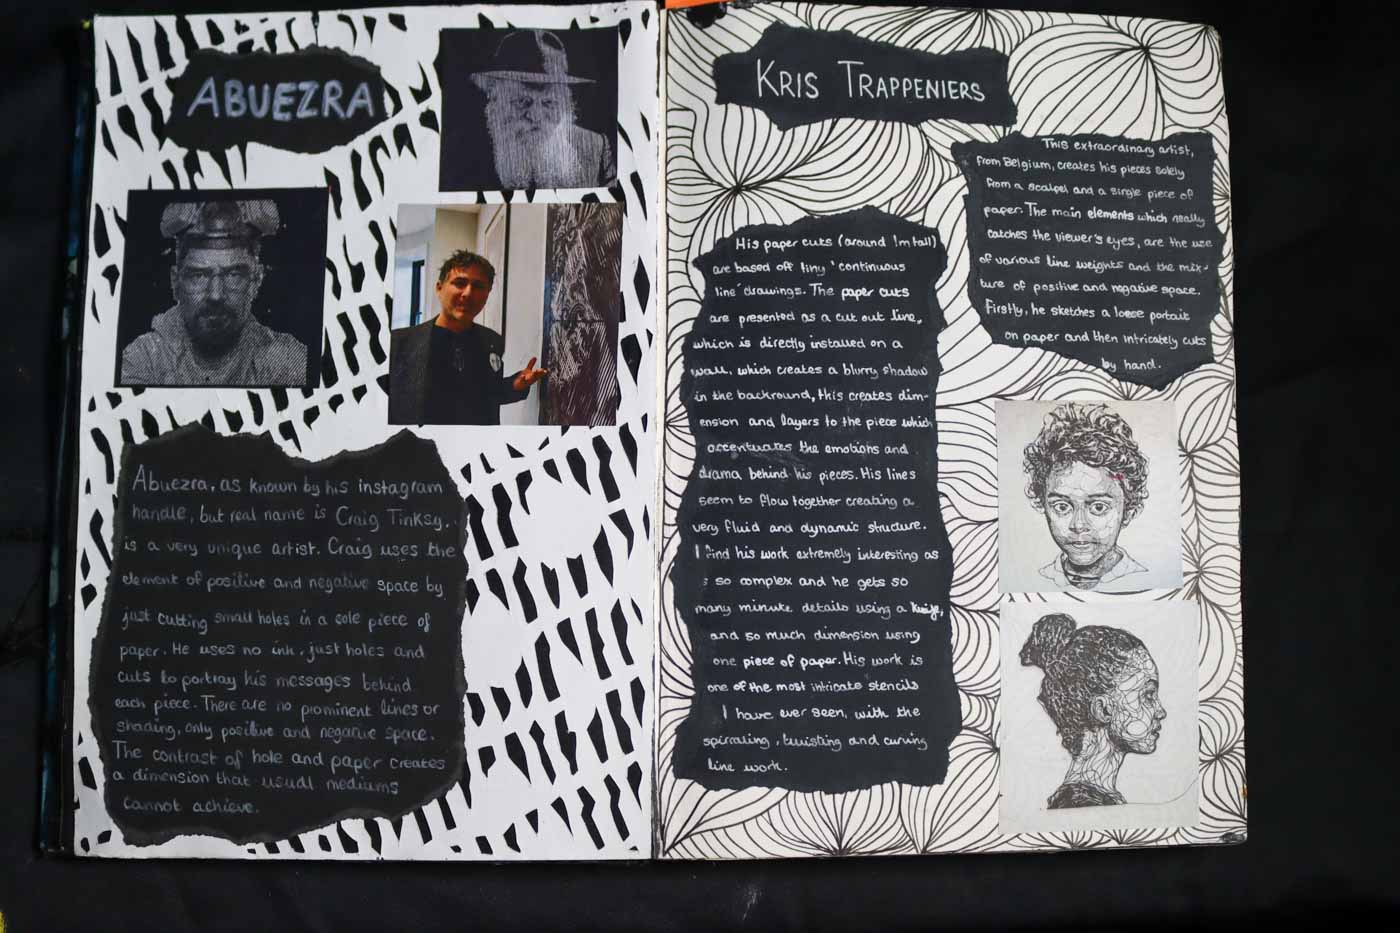 ABUEZRA
Abuezra, as known by his instagram
handle, but real name is Craig Tinksy.
is a very unique artist. Craig uses the
element of positive and negative space by
just cutting small holes in a sole piece of
paper. He uses no ink, just holes and
cuts to portray his messages behind
each piece. There are no prominent lines or
shading, only positive and negative space.
The contrast of hole and paper creates
a dimension that usual mediums
cannot achieve.
KRIS TRAPPENIERS
This extraordinary artist,
from Belgium, creates his pieces solely
from a scalpel and a single piece of
paper. The main elements which really
catches the viewer's eyes, are the use
of various line weights and the mix-
ture of positive and negative space.
Firstly, he sketches a loose portait
on paper and then intricately cuts
by hand.
His paper cuts (around 1m tall)
are based off tiny 'continuous
line' drawings. The paper cuts
are presented as a cut out line,
which is directly installed on a
wall, which creates a blurry shadow
in the backround, this creates dim-
ension and layers to the piece which
accentuates the emotions and
drama behind his pieces. His lines
seem to flow together creating a
very fluid and dynamic structure.
I find his work extremely interesting as
so complex and he gets so
many minute details using a knife,
and so much dimension using
one piece of paper. His work is
one of the most intricate stencils
I have ever seen, with the
spirraling, twisting and curving
line work.